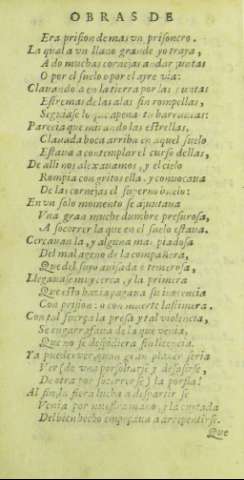 OBRAS DE
Era prision de mas vn prisonero.
La qual a vn llano grande yo traya,
A do muchas cornejas andar juntas
O por el suelo o por el ayre via:
Clauando a en la tierra por las puntas
Estremas de las alas sin rompellas,
Siguiase lo que apena tu barruntas:
Parecia que mirando las estrellas,
Clauada boca arriba en aquel suelo
Estaua a contemplar el curso dellas,
De alli nos alexauamos, y el cielo
Rompia con gritos ella, y conuocaua
De las cornejas el superno buelo:
En vn solo momento se ajuntaua
Vna gran muchedumbre presurosa,
A socorrer la que en el suelo estaua.
Cercauanla, y alguna mas piadosa
Del mal ageno de la compañera,
Que del suyo auisada o temerosa,
Llegauase muy cerca, y la primera
Que esto hazia pagaua su inocencia
Con prision o con muerte lastimera.
Con tal fuerça la presa y tal violencia,
Se engarrafaua de la que venia,
Que no se despidiera sin licencia.
Ya puedes ver quan gran plazer seria
Ver (de vna por soltarse y desasirse,
De otra por socorrerse) la porfia!
Al fin la fiera lucha a despartirse
Venia por nuestra mano, y la cuytada
Del bien hecho empeçaua a arrepentirse.
Que